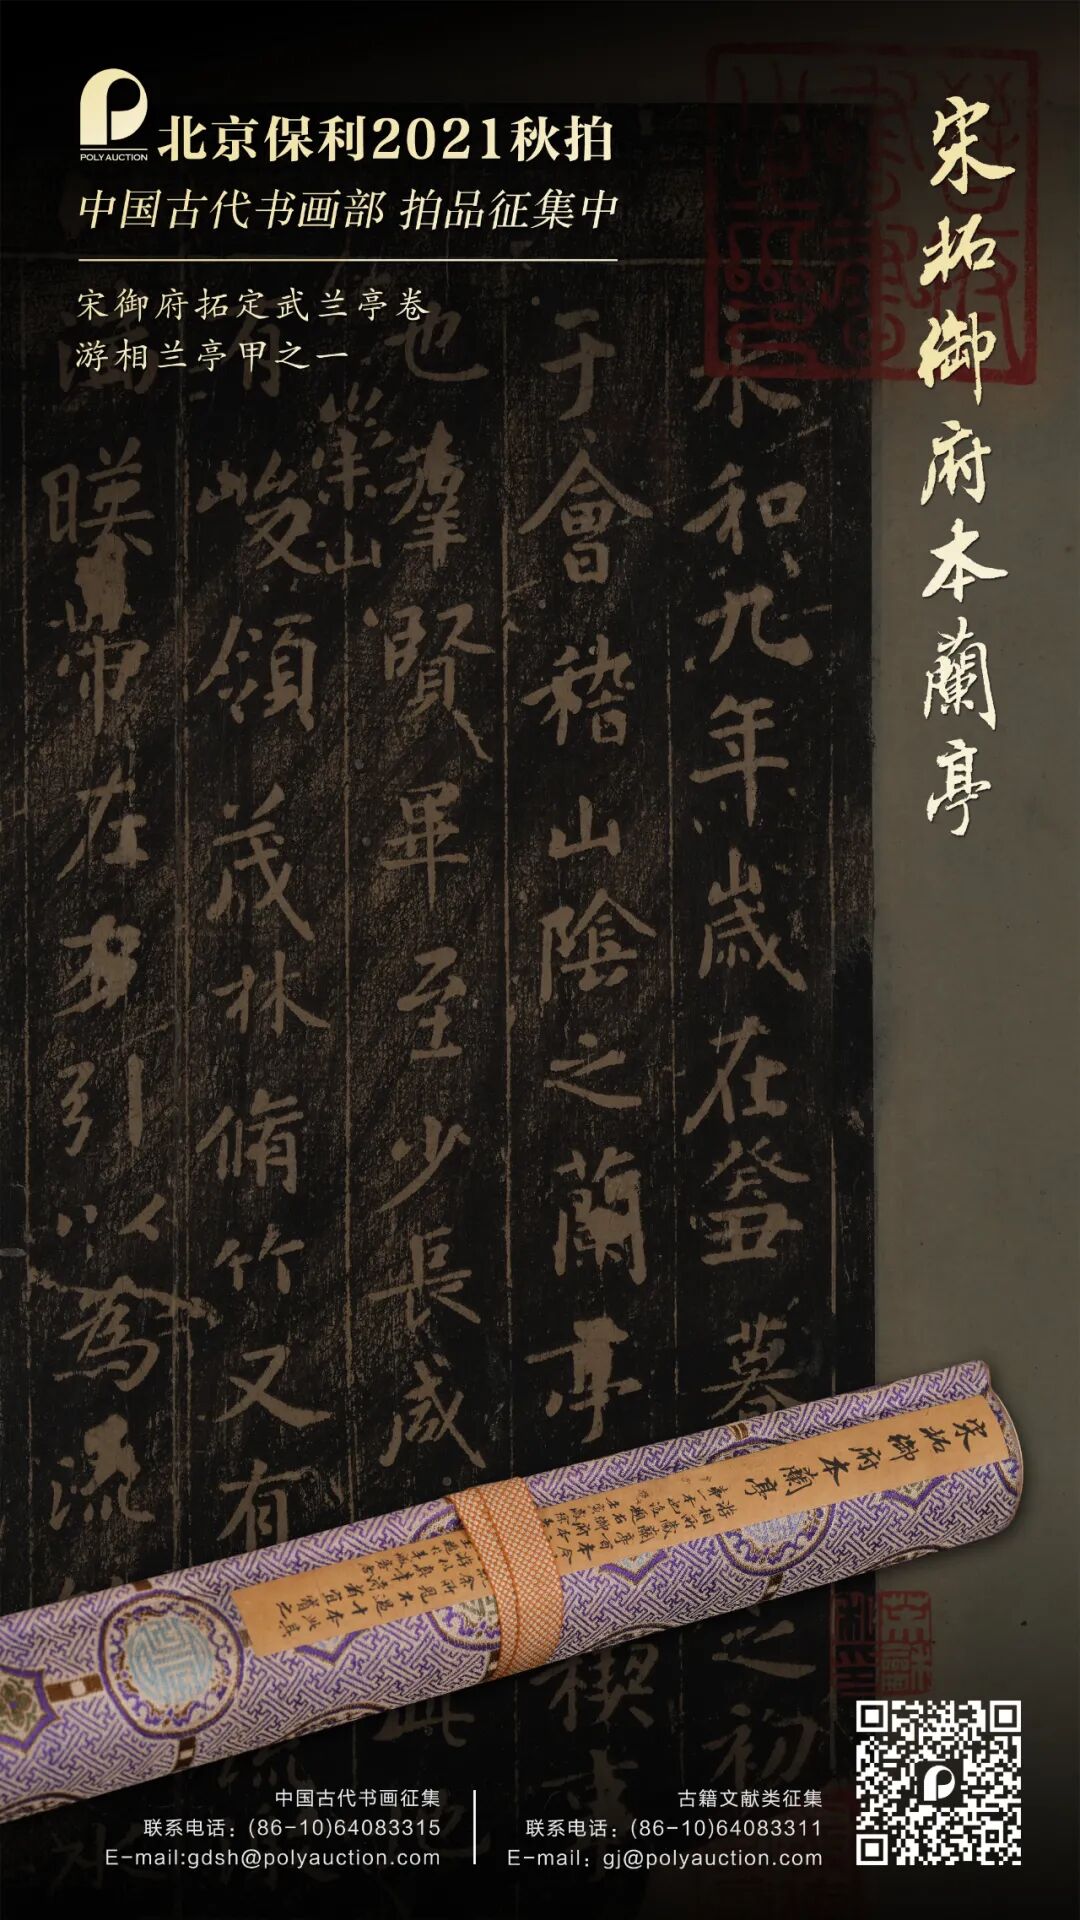 POLY AUCTION
北京保利2021秋拍
中国古代书画部 拍品征集中
宋御府拓定武兰亭卷
游相兰亭甲之一
宋拓御府本蘭亭
永和九年歲在癸丑暮
之初
于會稽山陰之蘭亭
禊事
也羣賢畢至少長咸
此地
有崇山
峻領茂林脩竹又有
湍
暎帶左右引以為流
宋拓御府本蘭亭
中国古代书画征集
联系电话：(86-10)64083315
E-mail:gdsh@polyauction.com
古籍文献类征集
联系电话：(86-10)64083311
E-mail: gj@polyauction.com